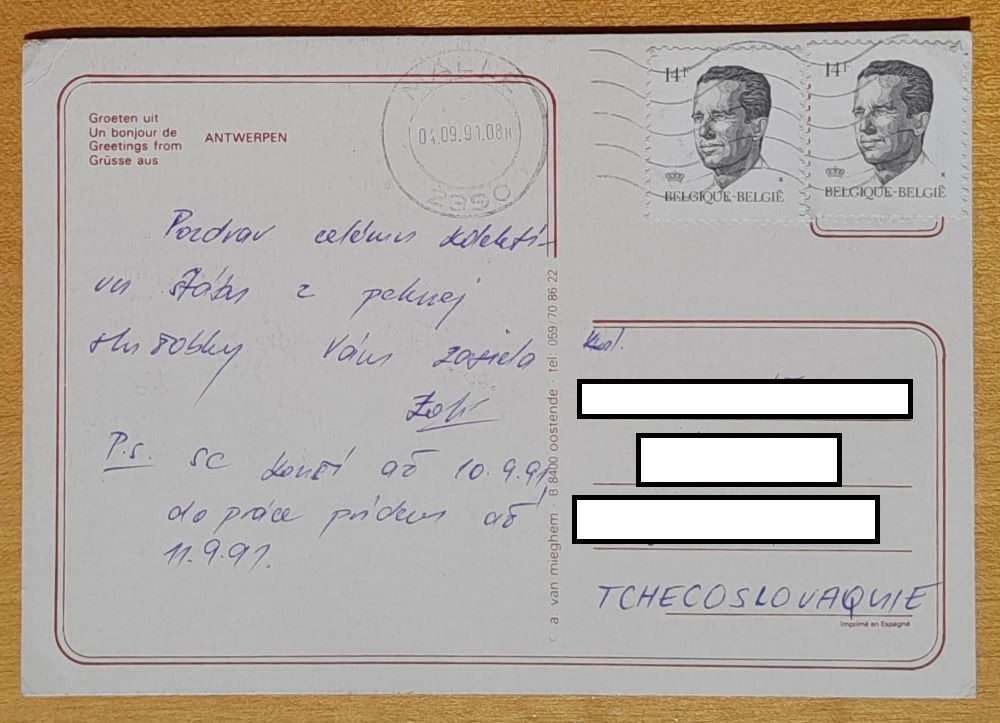 Groeten uit
Un bonjour de
Greetings from
Grüsse aus
ANTWERPEN
04.09.91.08H
2390
14F
BELGIQUE-BELGIË
14F
BELGIQUE-BELGIË
Pozdrav celému kolektí-
vu z peknej
služobky Vám zasiela
P.s. SC končí až 10.9.91
do práce prídem až
11.9.91.
a. van mieghem - B.8400 oostende - tel: 059/70 86 22
TCHECOSLOVAQUIE
Imprimé en Espagne